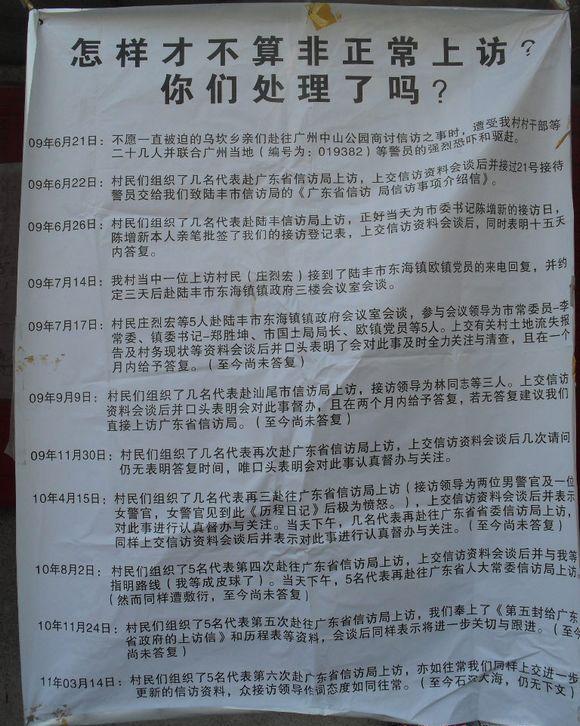 怎样才不算非正常上访？
你们处理了吗？
09年6月21日：不愿一直被迫的乌坎乡亲们赴往广州中山公园商讨信访之事时，遭受我村村干部等
二十几人并联合广州当地（编号为：019382）等警员的强烈恐吓和驱赶。
09年6月22日：村民们组织了几名代表赴广东省信访局上访，上交信访资料会谈后并接过21号接待
警员交给我们致陆丰市信访局的《广东省信访 局信访事项介绍信》。
09年6月26日：村民们组织了几名代表赴陆丰信访局上访，正好当天为市委书记陈增新的接访日，
陈增新本人亲笔批签了我们的接访登记表，上交信访资料会谈后，同时表明十五天
内答复。
09年7月14日：我村当中一位上访村民（庄烈宏）接到了陆丰市东海镇欧镇党员的来电回复，并约
定三天后赴陆丰市东海镇镇政府三楼会议室会谈。
09年7月17日：村民庄烈宏等5人赴陆丰市东海镇镇政府会议室会谈，参与会议领导为市常委员-李
常委、镇委书记-郑胜坤、市国土局局长、欧镇党员等5人。上交有关村土地流失报
告及村务现状等资料会谈后并口头表明了会对此事及时全力关注与清查，且在一个
月内给予答复。（至今尚未答复）
09年9月9日：村民们组织了几名代表赴汕尾市信访局上访，接访领导为林同志等三人。上交信访
资料会谈后并口头表明会对此事督办，且在两个月内给予答复，若无答复建议我们
直接上访广东省信访局。（至今尚未答复）
09年11月30日：村民们组织了几名代表再次赴广东省信访局上访，上交信访资料会谈后几次请问
仍无表明答复时间，唯口头表明会对此事认真督办与关注。
10年4月15日：村民们组织了几名代表再三赴往广东省信访局上访（接访领导为两位男警官及一位
女警官，女警官见到此《历程日记》后极为愤怒。），上交信访资料会谈后并表示
对此事进行认真督办与关注。当天下午，几名代表再赴往广东省省委信访局上访，
同样上交信访资料会谈后并表示对此事进行认真督办与关注。（至今尚未答复）
10年8月2日：村民们组织了5名代表第四次赴往广东省信访局上访，上交信访资料会谈后并与我等
指明路线（我等成皮球了）。当天下午，5名代表再赴往广东省人大常委信访局上访
（然而同样遭敷衍，至今尚未答复）
10年11月24日：村民们组织了5名代表第五次赴往广东省信访局上访，我们奉上了《第五封给广东
省政府的上访信》和历程表等资料，会谈后同样表示将进一步关切与跟进。（至今
尚未答复）
11年03月14日：村民们组织了5名代表第六次赴广东省信访局上访，亦如往常我们同样上交进一步
更新的信访资料，众接访领导作词态度如同往常。（至今石沉大海，仍无下文）